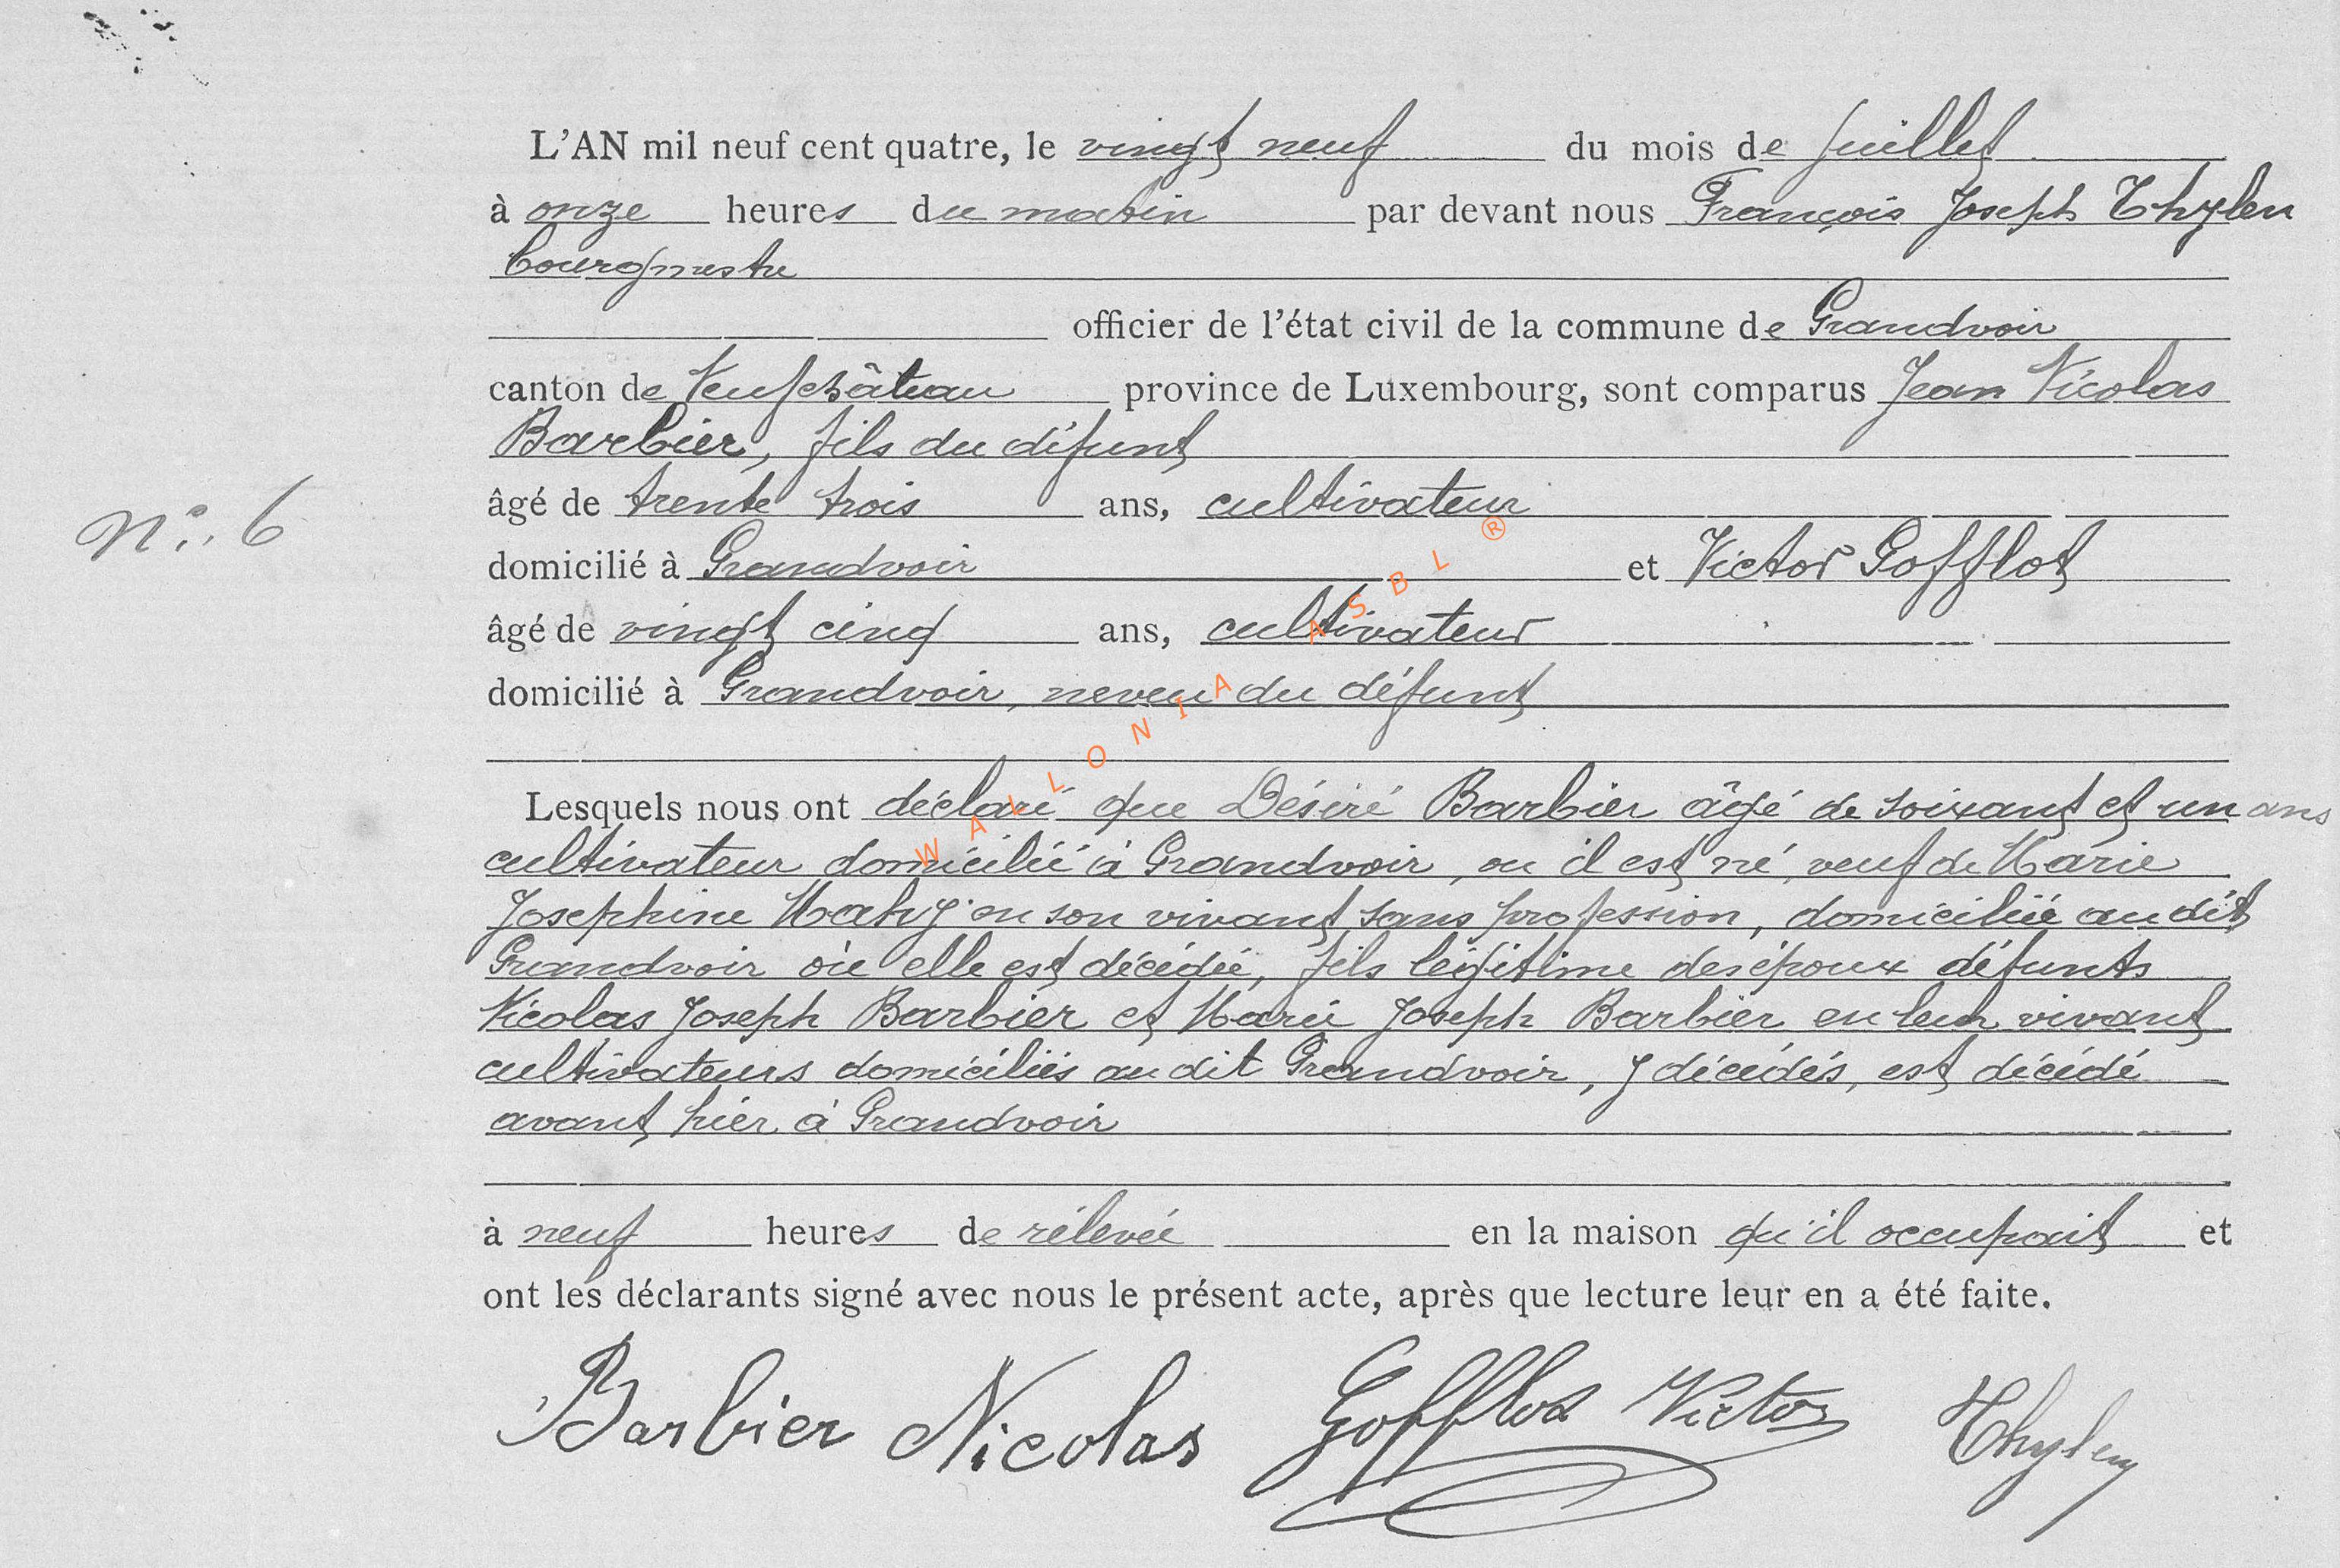 L'AN mil neuf cent quatre, le vingt neuf du mois de Juillet
à onze heures du matin par devant nous François Joseph Thylen
bourgmestre
officier de l'état civil de la commune de Grandvoir
canton de Neufchâteau province de Luxembourg, sont comparus Jean Nicolas
Barbier, fils du défunt
N°. 6
âgé de trente trois ans, cultivateur
domicilié à Grandvoir et Victor Gofflot
âgé de vingt cinq ans, cultivateur
domicilié à Grandvoir, neveu du défunt
WALLONIA ASBL ®
Lesquels nous ont déclaré que Désiré Barbier âgé de soixant et un ans
cultivateur domicilié à Grandvoir, ou il est né, veuf de Marie
Josephine Mahy en son vivant sans profession, domiciliée au dit
Grandvoir où elle est décédée, fils légitime des époux défunts
Nicolas Joseph Barbier et Marie Joseph Barbier en leur vivant
cultivateurs domiciliés au dit Grandvoir, y décédés, est décédé
avant hier à Grandvoir
à neuf heures de rélevée en la maison qu'il occupait et
ont les déclarants signé avec nous le présent acte, après que lecture leur en a été faite.
Barbier Nicolas Gofflot Victor Thylen